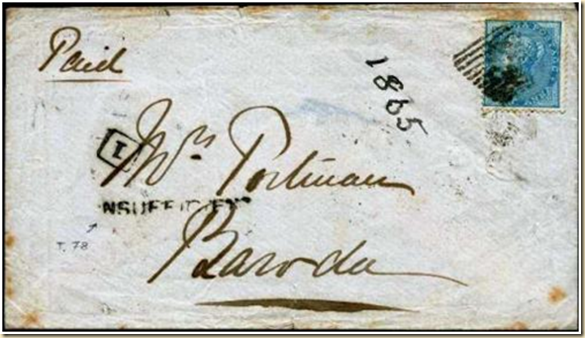 Paid
1865
1
Mrs. Portman
INSUFFICIENT
T. 78
Baroda